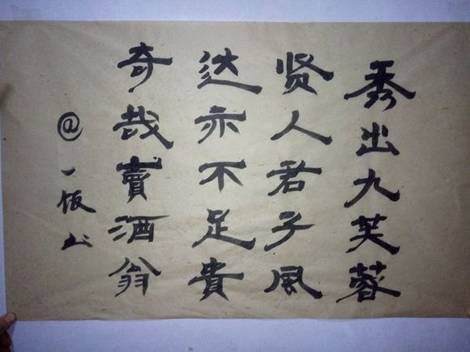 秀出九芙蓉
贤人君子风
达亦不足貴
奇哉賣酒翁
@一饭书